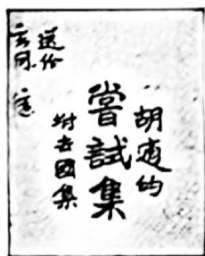 胡適的
嘗試集
附去國集
送給
玄同 適